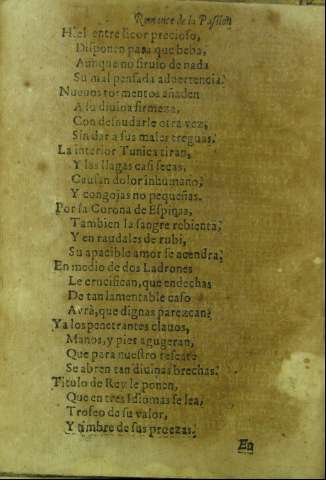 Romance de la Passion
Hiel entre licor precioso,
Disponen para que beba,
Aunque no siruio de nada
Su mal pensada aduertencia.
Nueuos tormentos añaden
A su diuina firmeza,
Con desnudarle otra vez,
Sin dar a sus males treguas.
La interior Tunica tiran,
Y las llagas casi secas,
Causan dolor inhumano,
Y congojas no pequeñas.
Por la Corona de Espinas,
Tambien la sangre rebienta,
Y en raudales de rubi,
Su apacible amor se acendra,
En medio de dos Ladrones
Le crucifican, que endechas
De tan lamentable caso
Avrà, que dignas parezcan?
Ya los penetrantes clauos,
Manos, y pies agugeran,
Que para nuestro rescate
Se abren tan diuinas brechas.
Titulo de Rey le ponen,
Que en tres Idiomas se lea,
Trofeo de su valor,
Y timbre de sus proezas.
En